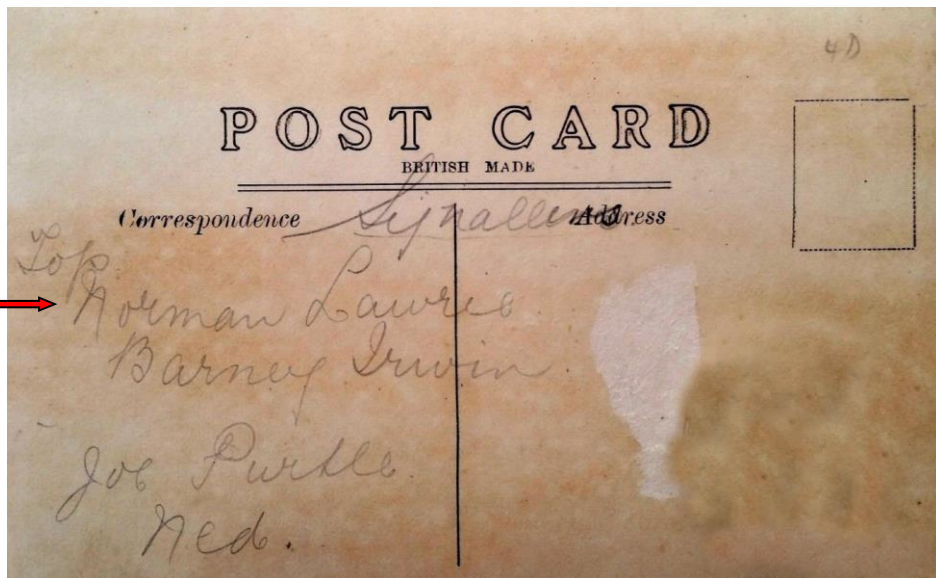 4D
POST CARD
BRITISH MADE
Correspondence Signallers Address
Top
Norman Lawrie
Barney Irwin.
Joe Purtle.
Ned.